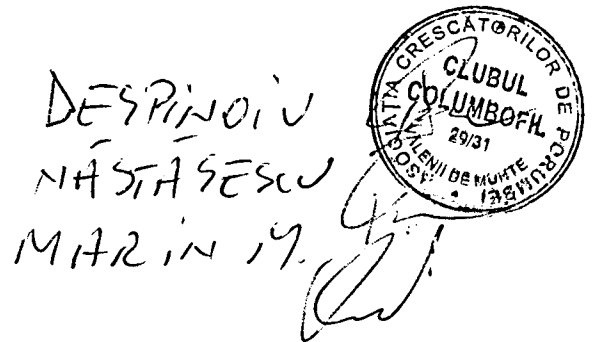 DESPINOIU
NĂSTĂSESCU
MARIN M.
ASOCIAȚIA CRESCĂTORILOR DE PORUMBEI
CLUBUL
COLUMBOFIL
29/31
VĂLENII DE MUNTE